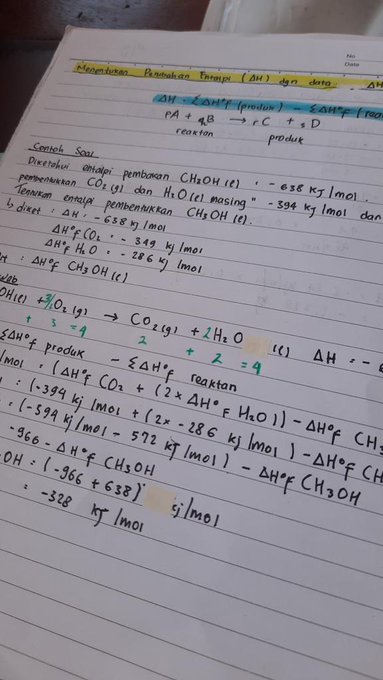 No
Data
Menentukan Perubahan Entalpi (ΔH) dgn data ΔH
ΔH = ΣΔH°f (produk) - ΣΔH°f (rea
pA + qB → rC + sD
reaktan produk
Contoh Soal
Diketahui entalpi pembakaran CH3OH (l) = -638 kJ/mol.
pembentukkan CO2 (g) dan H2O (l) masing" -394 kJ/mol dan
Tentukan entalpi pembentukkan CH3OH (l).
↳ diket : ΔH = -638 kJ/mol
ΔH°f CO2 = -349 kJ/mol
ΔH°f H2O = -286 kJ/mol
: ΔH°f CH3OH (l)
OH (l) + 3/2 O2 (g) → CO2 (g) + 2H2O (l) ΔH = -
+ 3 = 4 2 + 2 = 4
ΣΔH°f produk - ΣΔH°f reaktan
/mol = (ΔH°f CO2 + (2 x ΔH°f H2O)) - ΔH°f CH3
: (-394 kJ/mol + (2x -286 kJ/mol) - ΔH°f CH
: (-394 kJ/mol - 572 kJ/mol) - ΔH°f CH3OH
-966 - ΔH°f CH3OH
OH = (-966 + 638) kJ/mol
= -328 kJ/mol